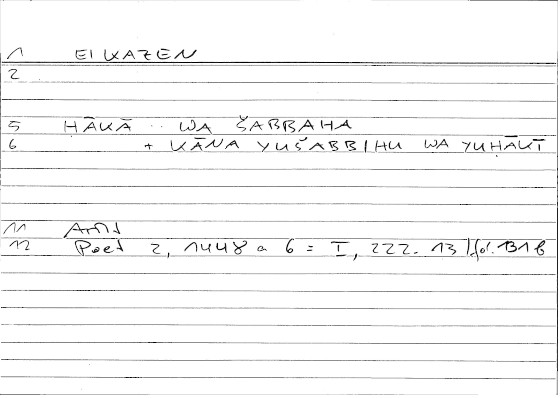 1 EIKAZEN
2
5 HĀKĀ .. WA ŠABBAHA
6 + KĀNA YUŠABBIHU WA YUHĀKĪ
11 Arist
12 Poet 2, 1448 a 6 = I, 222.13 / fol. 131 b